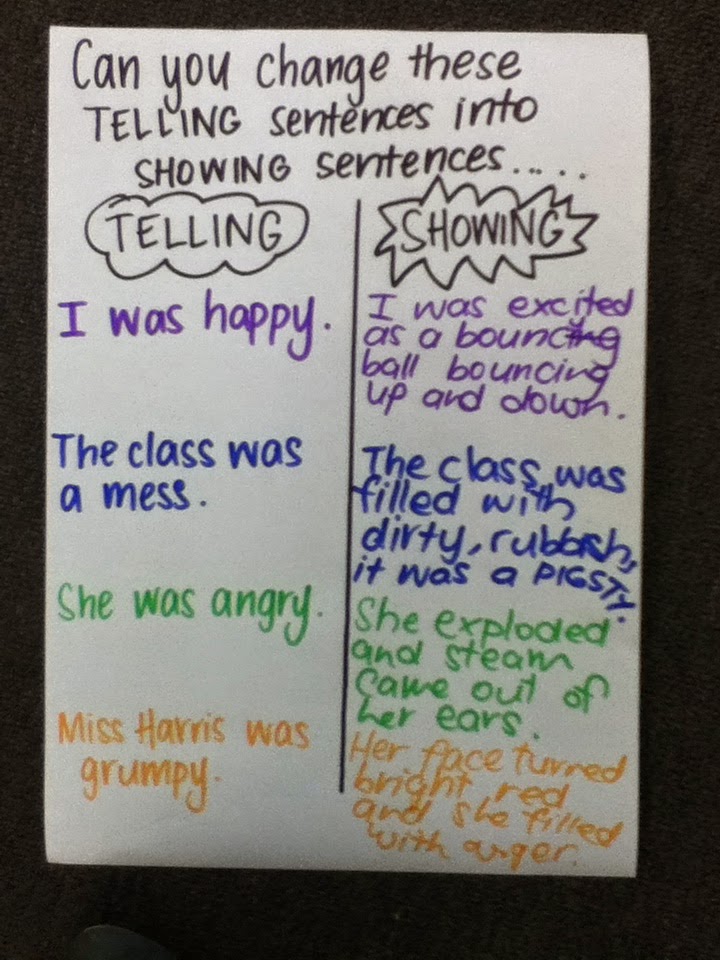 Can you change these
TELLING sentences into
SHOWING sentences.....
TELLING
SHOWING
I was happy.
I was excited
as a bouncing
ball bouncing
up and down.
The class was
a mess.
The class was
filled with
dirty, rubbish,
it was a PIGSTY.
She was angry.
She exploded
and steam
came out of
her ears.
Miss Harris was
grumpy.
Her face turred
bright red
and she filled
with anger.